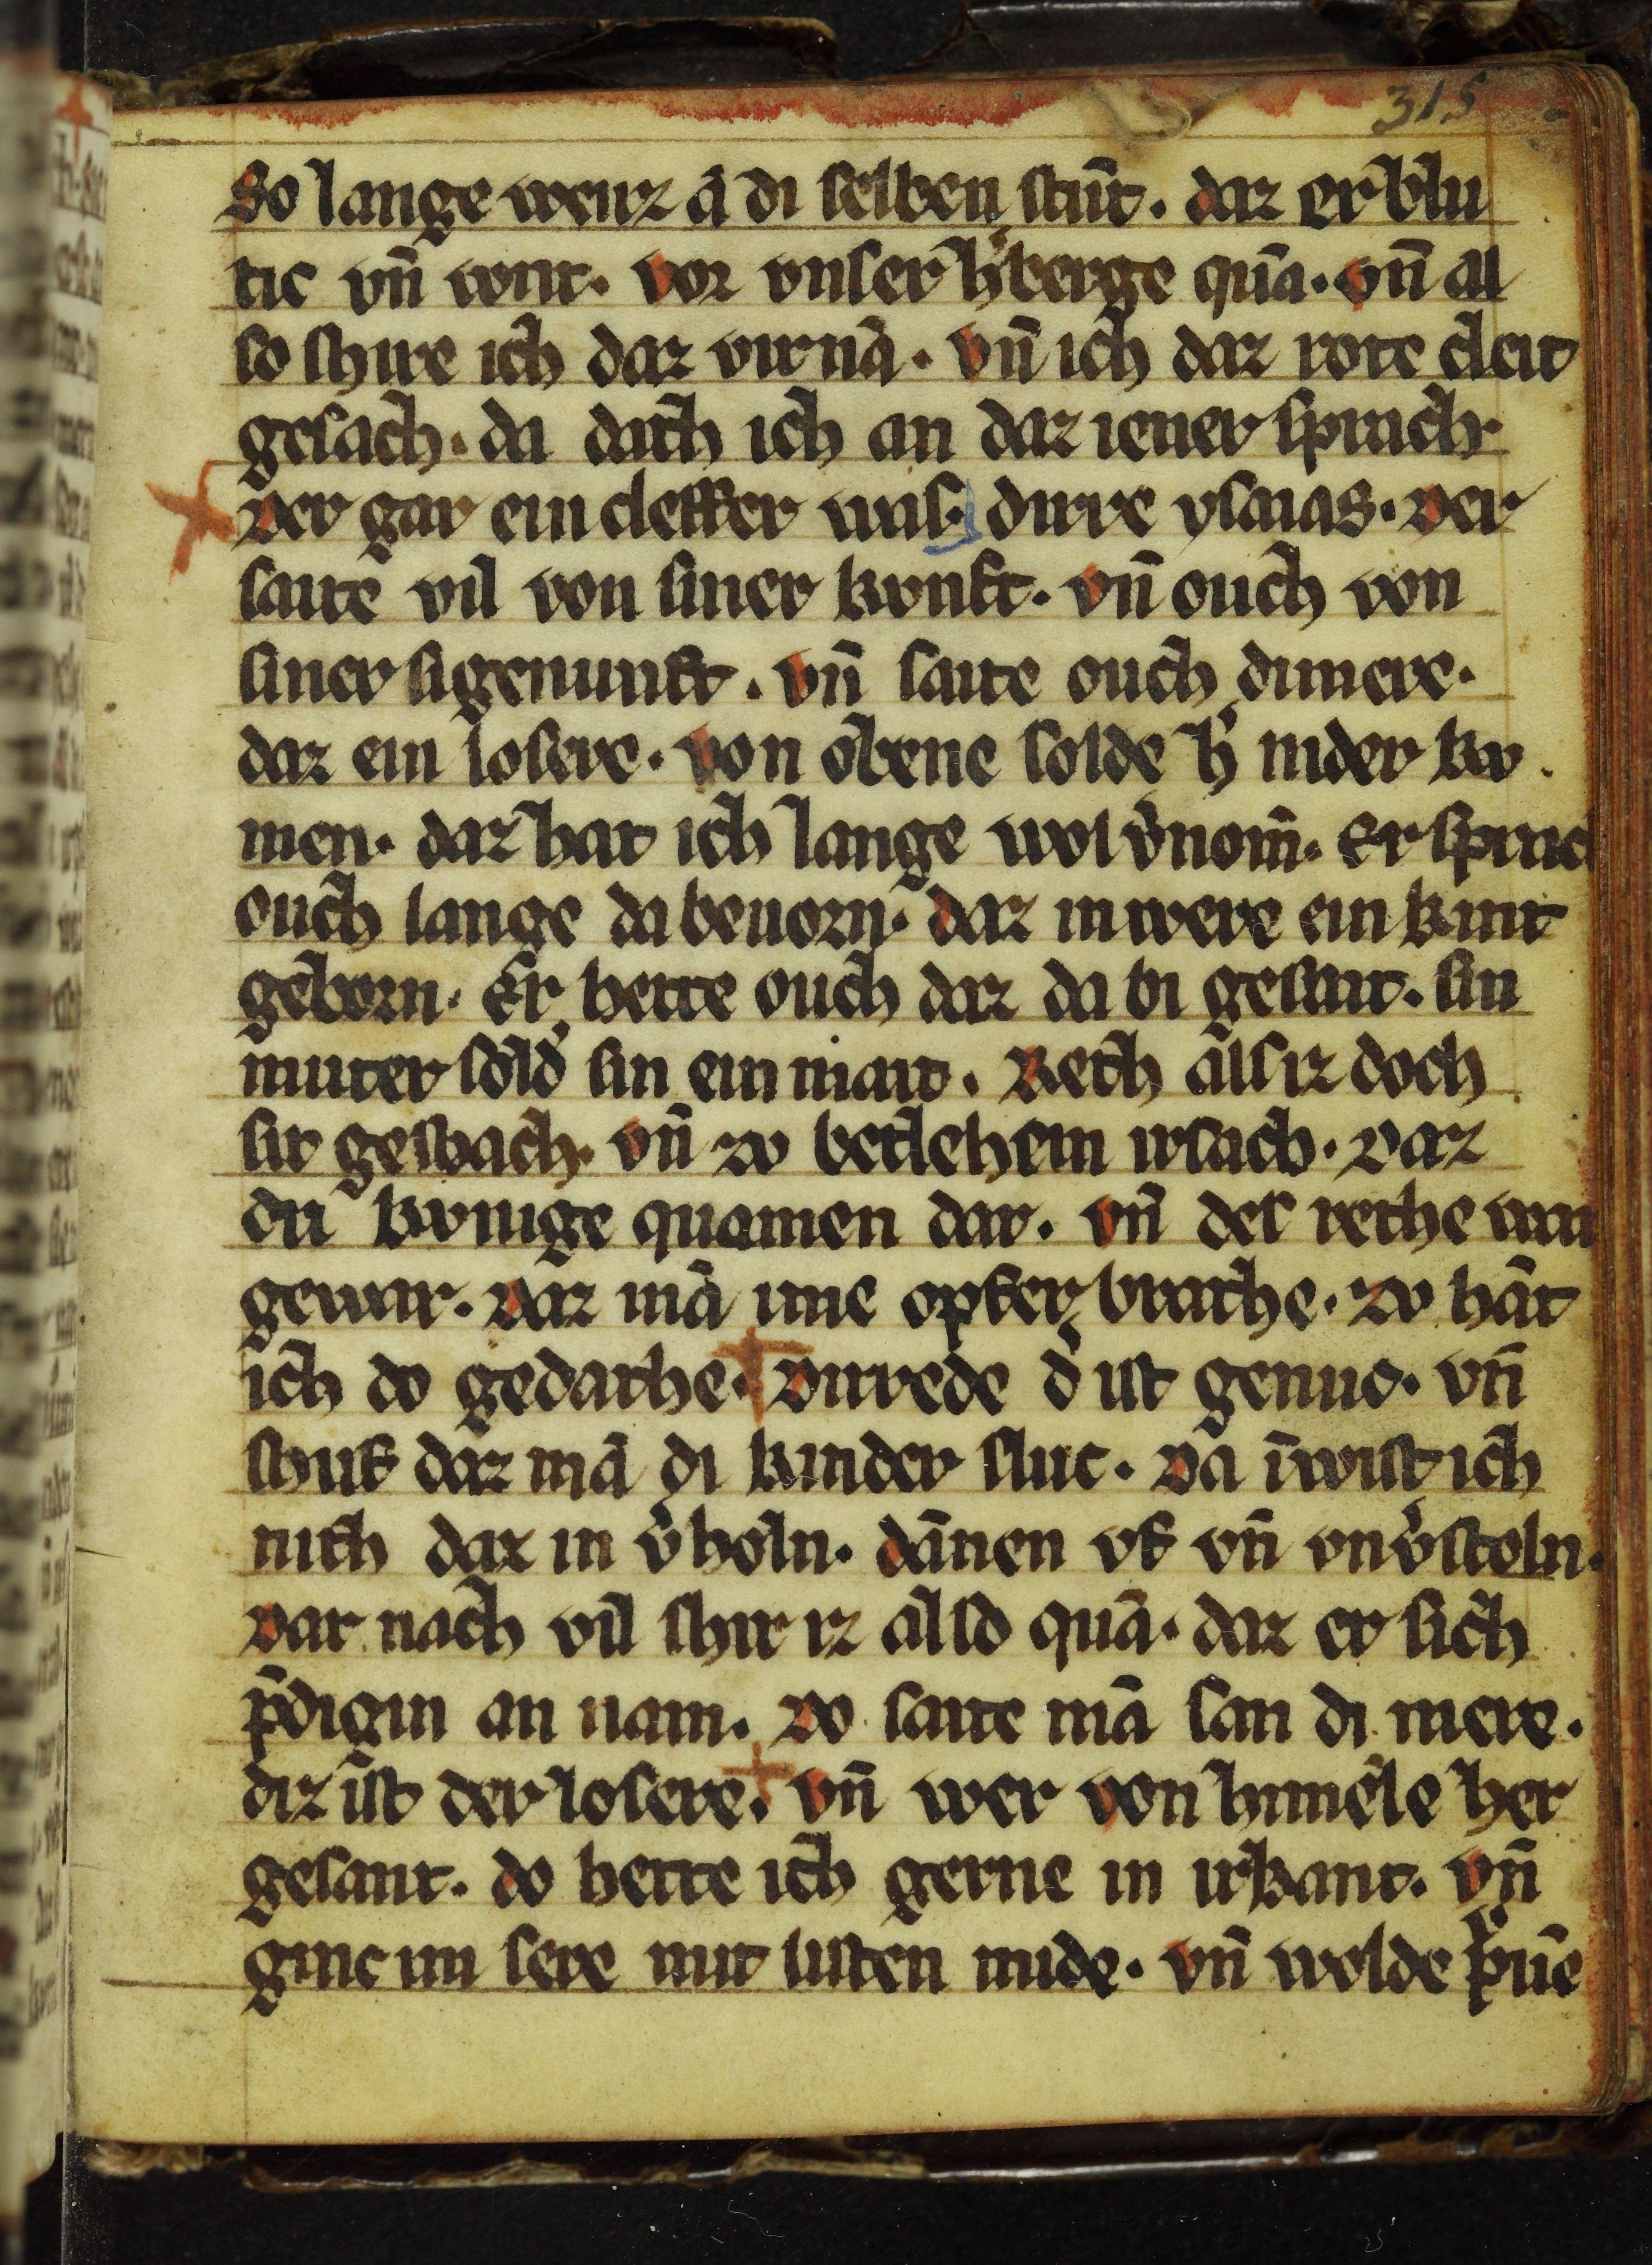 315
So lange wenz ā di selben stūt. daz er blu
tic vn̄ wnt. vor vnser h̓berge quā. vn̄ al
so shire ich daz virnā. vn̄ ich daz rote cleit
gesach. da dath ich an daz iener sprach
Der gar ein cleffer was. dirre ysaias. Der
saite vil von siner kvnft. vn̄ ouch von
siner sigenunft. vn̄ saite ouch dimere.
daz ein losere. von obene solde h̓ nider kv
men. daz hat ich lange wol v̓nom̄. Er sprac
ouch lange da beuorn. daz in were ein kint
geborn. Er hette ouch daz da bi gesait. sin
muter sold̓ sin ein mait. Reth als iz doch
sit geschach. vn̄ zv betlehem irsach. Daz
dri kvnige quamen dar. vn̄ des rethe wan
gewar. Daz mā ime opfer brathe. zv hāt
ich do gedathe. Dirrede d̓ ist genuc. vn̄
shuf daz mā di kinder sluc. Da īwist ich
nith daz in v̓holn. dānen vf vn̄ vnv̓stoln.
Dar nach vil shir iz also quā. daz er sich
p̄digin an nam. Do saite mā san di mere.
diz ist der losere. vn̄ wer von himele her
gesant. do hette ich gerne in irkant. vn̄
ginc im sere mit listen mide. vn̄ wolde p̓uē